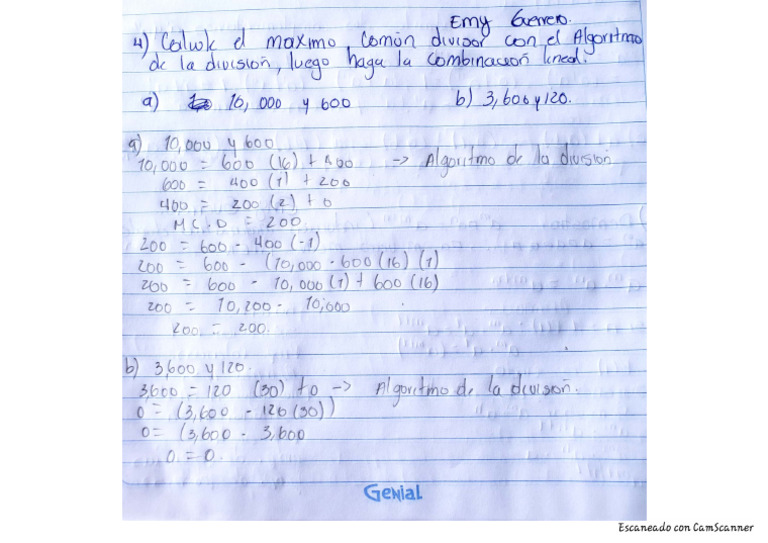 Emy Guerrero.
4) Calcule el maximo, Común divisor con el Algoritmo
de la división, luego haga la combinación lineal.
a) 10,000 y 600 b) 3,600 y 120.
a) 10,000 y 600
10,000 = 600 (16) + 400 -> Algoritmo de la división
600 = 400 (1) + 200
400 = 200 (2) + 0
M.C.D = 200
200 = 600 - 400 (-1)
200 = 600 - (10,000 - 600 (16) (1)
200 = 600 - 10,000 (1) + 600 (16)
200 = 10,200 - 10,000
200 = 200.
b) 3,600 y 120.
3,600 = 120 (30) + 0 -> Algoritmo de la división.
0 = (3,600 - 120 (30))
0 = (3,600 - 3,600
0 = 0.
Genial
Escaneado con CamScanner